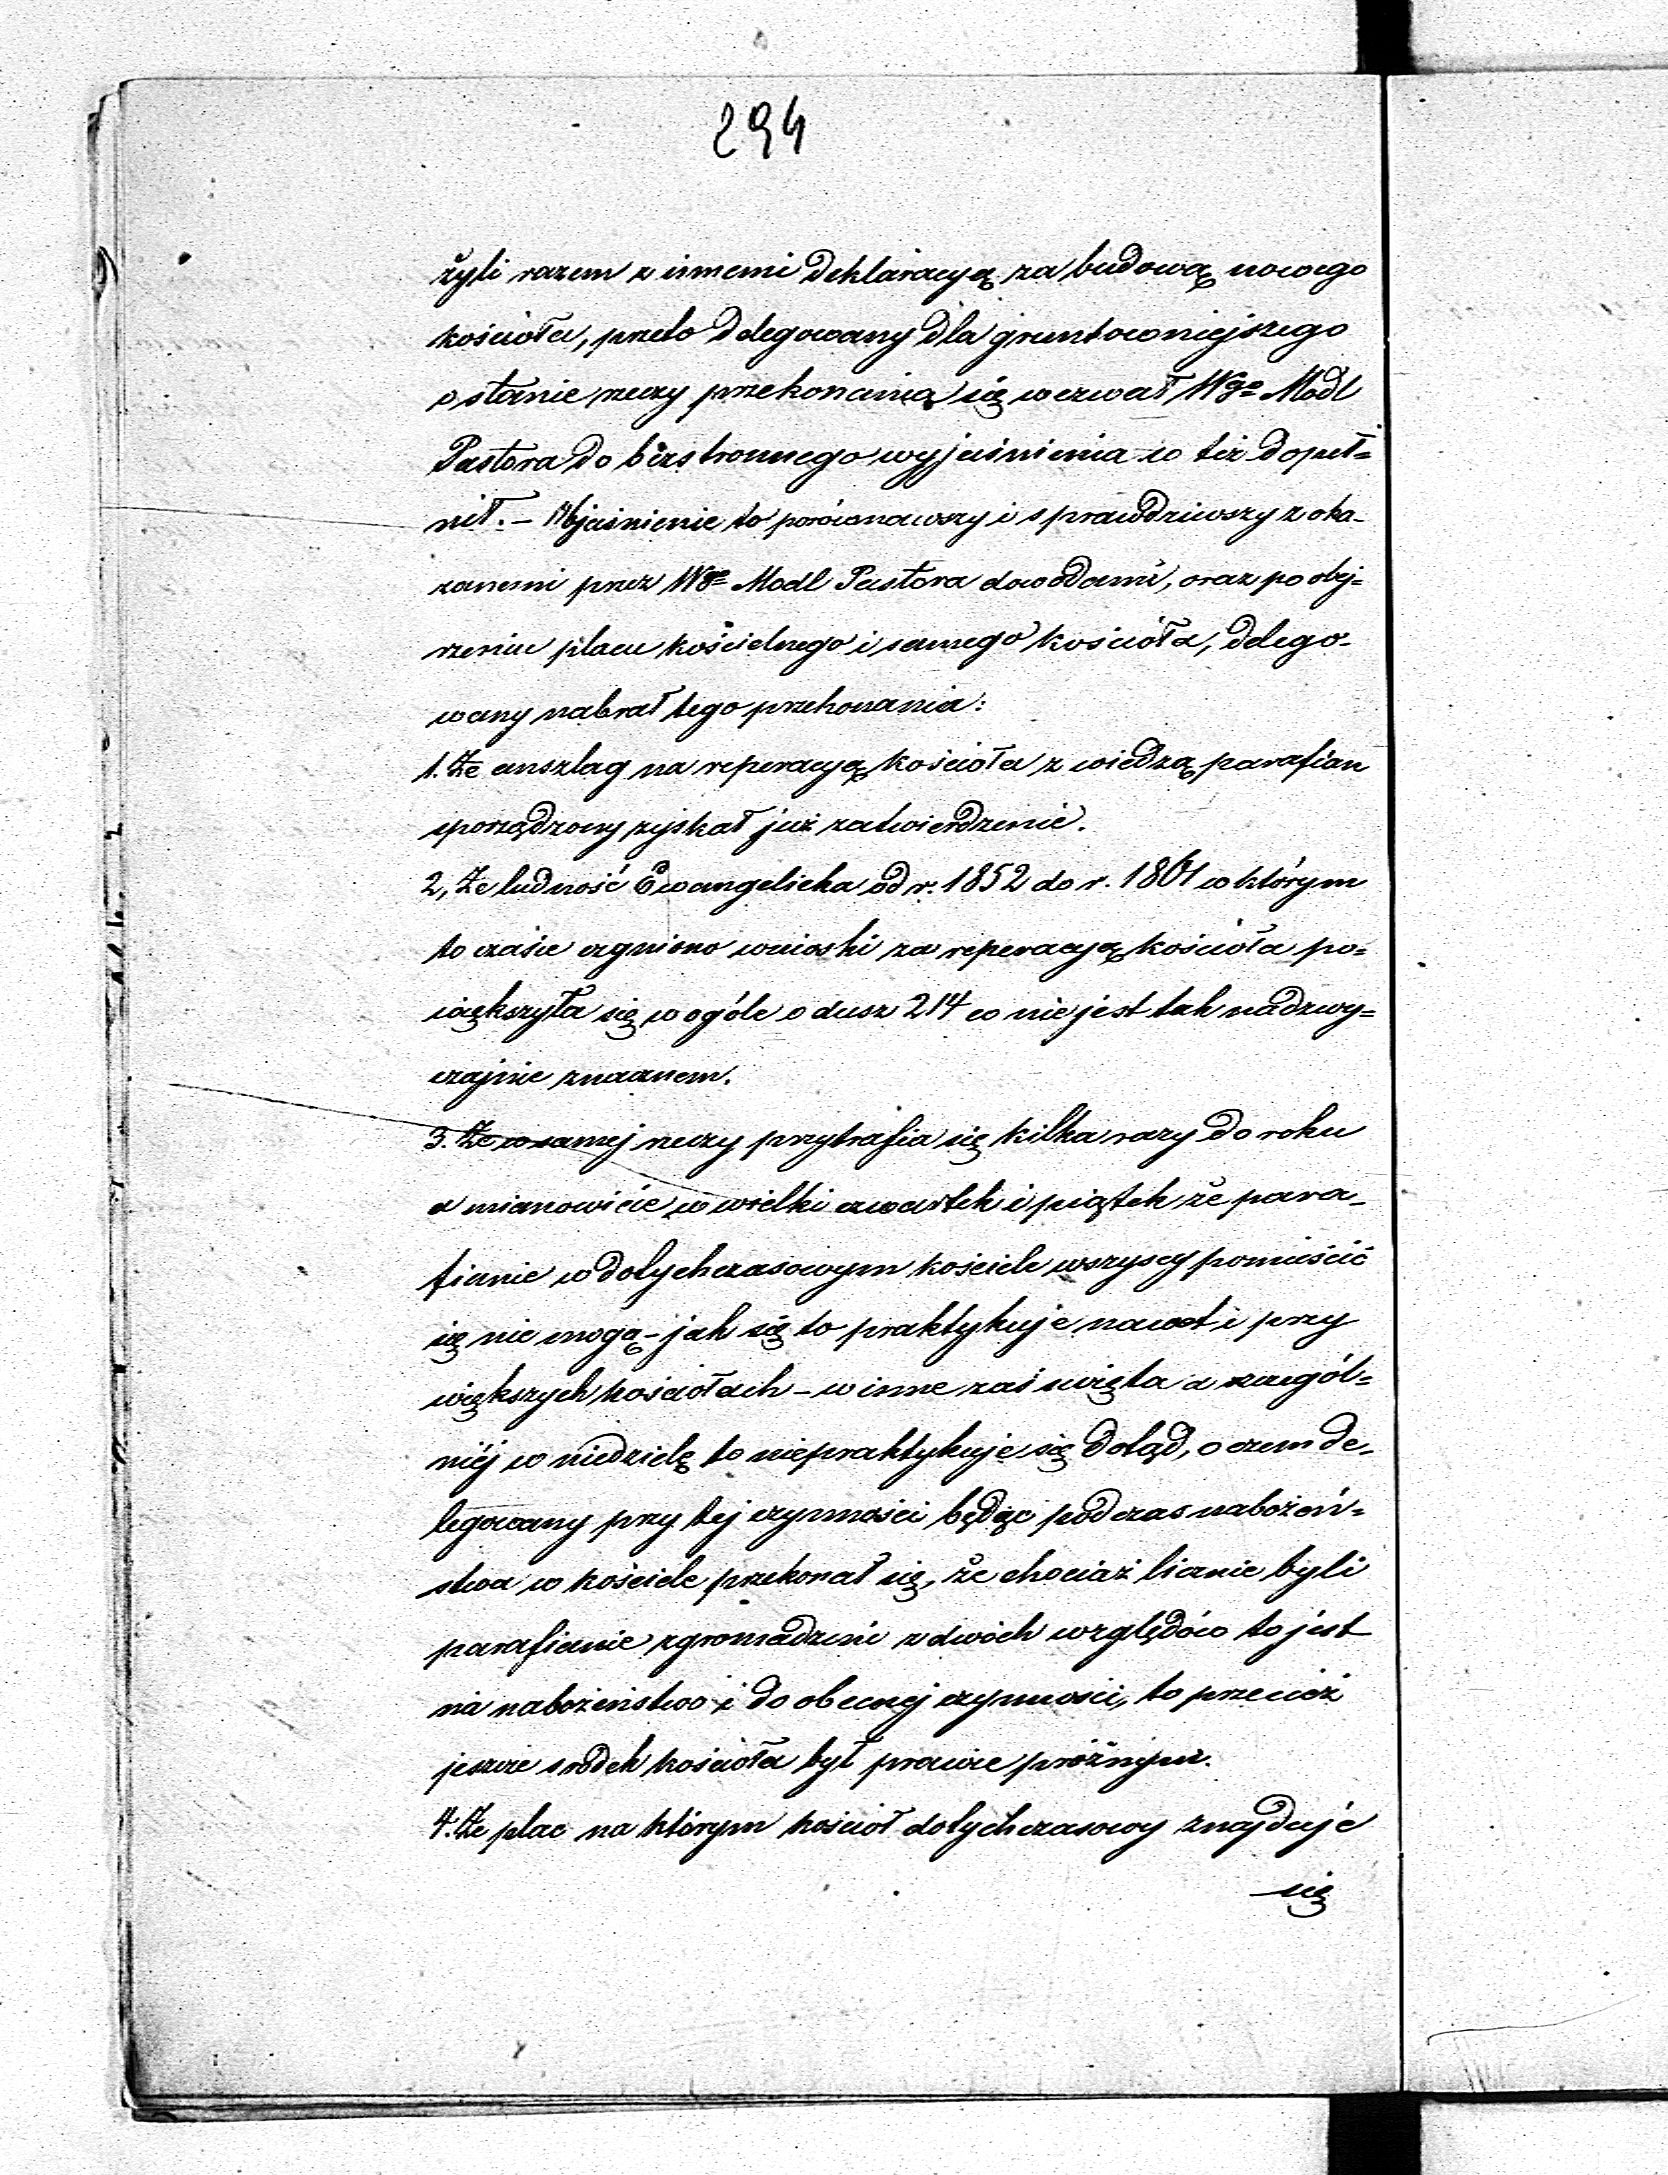 294
żyli razem z innemi deklaracyą za budową nowego
kościoła, przeto delegowany dla gruntowniejszego
o stanie rzeczy przekonania się wezwał Wgo Modl
Pastora do bezstronnego wyjaśnienia co też dopeł=
nił. – Objaśnienie to porównawszy i sprawdziwszy z oka-
zanemi przez Wgo Modl Pastora dowodami, oraz po obej=
rzeniu placu kościelnego i samego kościoła, delego-
wany nabrał tego przekonania:
1. Że anszlag na reperacyą kościoła z wiedzą parafian
sporządzony zyskał już zatwierdzenie.
2, Że ludność Ewangelicka od r. 1852 do r. 1861 w którym
to czasie czyniono wnioski za reperacyą kościoła po=
większyła się w ogóle o dusz 214 co nie jest tak nadzwy=
czajnie znacznem.
3. Że w samej rzeczy przytrafia się kilka razy do roku
a mianowicie w wielki czwartek i piątek że para-
fianie w dotychczasowym kościele wszyscy pomieścić
się nie mogą – jak się to praktykuje nawet i przy
większych kościołach – w inne zaś święta a szczegól=
niéj w niedzielę to niepraktykuje się dotąd, o czem de-
legowany przy tej czynności będąc podczas nabożeń=
stwa w kościele przekonał się, że chociaż licznie byli
parafianie zgromadzeni z dwóch względów to jest
na nabożeństwo i do obecnej czynności, to przecież
jeszcze środek kościoła był prawie próżnym.
4. Że plac na którym kościoł dotychczasowy znajduje
się